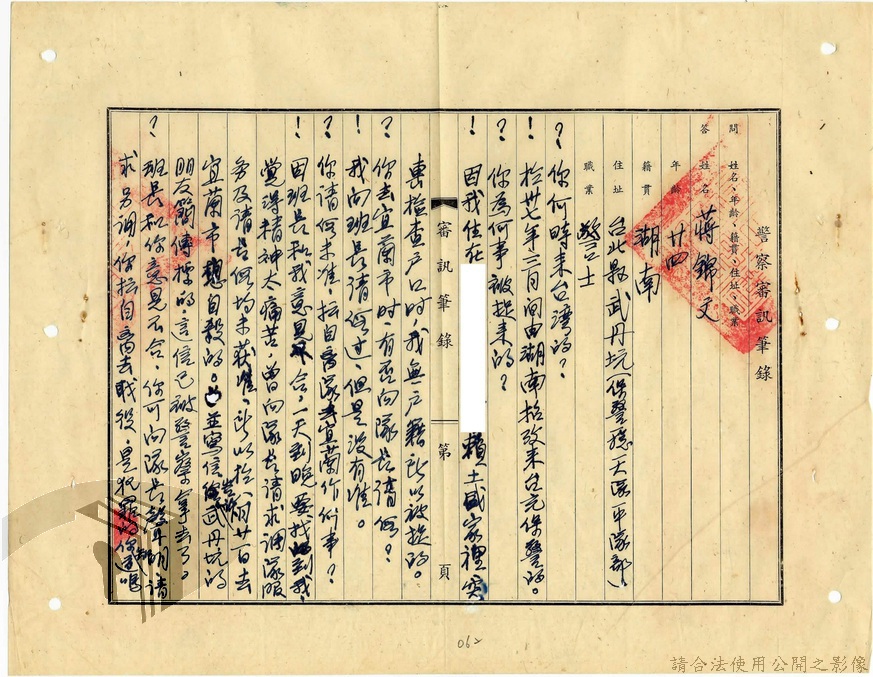 警察審訊筆錄
問 姓名、年齡、籍貫、住址、職業
答 姓名 蔣錦文
年齡 廿四
籍貫 湖南
住址 台北縣武丹坑(保警總一大隊一中隊部)
職業 警士
? 你何時來台灣的?
! 於卅七年三月間由湖南招考來台充保警的。
? 你為何事被捉來的?
! 因我住在 賴土盛家裡突
審訊筆錄 第 頁
專檢查戶口時,我無戶籍所以被捉的。
? 你去宜蘭市時,有否向隊長請假?
! 我向班長請假過,但是沒有准。
? 你請假未准擅自離隊來宜蘭作何事?
! 因班長和我意見不合,一天到晚要找到我,
覺得精神太痛苦,曾向隊長請求調隊服
務及請長假均未獲准,所以於八月廿一日去
宜蘭市想自殺的。並寫信給武丹坑的
朋友簡傳標的,這信已被警察拿去了。
? 班長和你意見不合,你可向隊長說明,請
求另調,你擅自離去職役,是犯罪的你知道嗎
062
請合法使用公開之影像